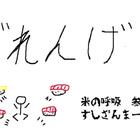 れんげ
米の呼吸
すしざんまー